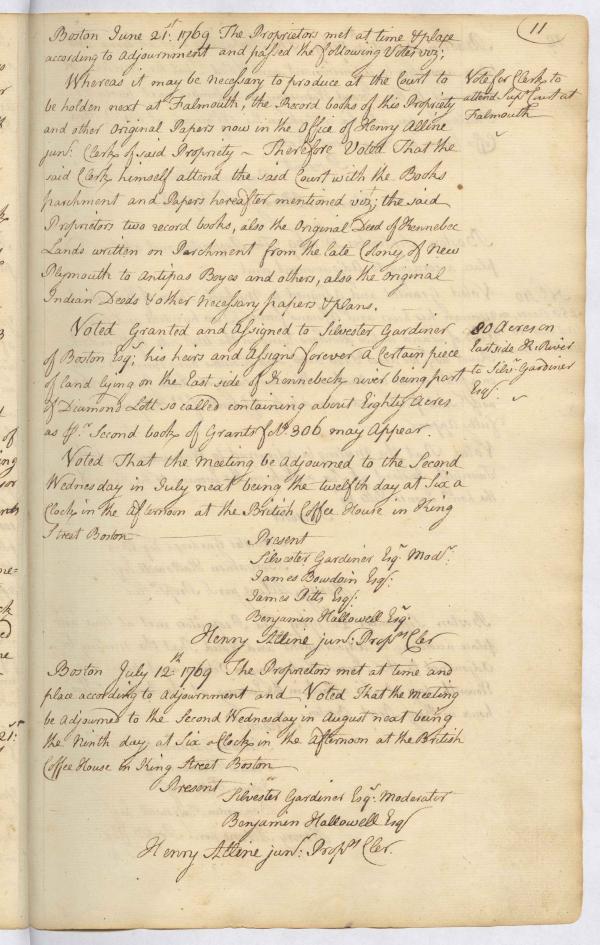 11
Boston June 21st. 1769 The Proprietors met at time & place
according to Adjournment and passed the following Votes viz;
Whereas it may be necessary to produce at the Court to
be holden next at Falmouth, the Record books of this Propriety
and other Original Papers now in the Office of Henry Alline
junr. Clerk of said Propriety ~ Therefore Voted That the
said Clerk himself attend the said Court with the Books
parchment and Papers hereafter mentioned vizt; the said
Proprietors two record books, also the Original Deed of Kennebec
Lands written on Parchment from the late Colony of New
Plymouth to Antipas Boyes and others, also the Original
Indian Deeds & other Necessary papers & plans.
Vote for Clerk to
attend Supr. Court at
Falmouth
Voted Granted and Assigned to Silvester Gardiner
of Boston Esqr; his heirs and Assigns forever A Certain piece
of land lying on the East side of Kennebeck river being part
of Diamond Lott so called containing about Eighty Acres
as pr. Second book of Grants fo. No. 306 may Appear.
80 Acres on
East side K. River
to Silvr. Gardiner
Esqr.
Voted That the Meeting be Adjourned to the Second
Wednesday in July next being the twelfth day at Six a
Clock in the Afternoon at the British Coffee House in King
Street Boston
Present
Silvester Gardiner Esqr. Modr.
James Bowdoin Esqr.
James Pitts Esqr.
Benjamin Hallowell Esqr.
Henry Alline junr. Proprs Cler
Boston July 12th. 1769 The Proprietors met at time and
place according to Adjournment and Voted That the Meeting
be adjourned to the Second Wednesday in August next being
the Ninth day at Six oClock in the Afternoon at the British
Coffee House in King Street Boston
Present
Silvester Gardiner Esqr. Moderator
Benjamin Hallowell Esqr
Henry Alline junr. Proprs Cler.